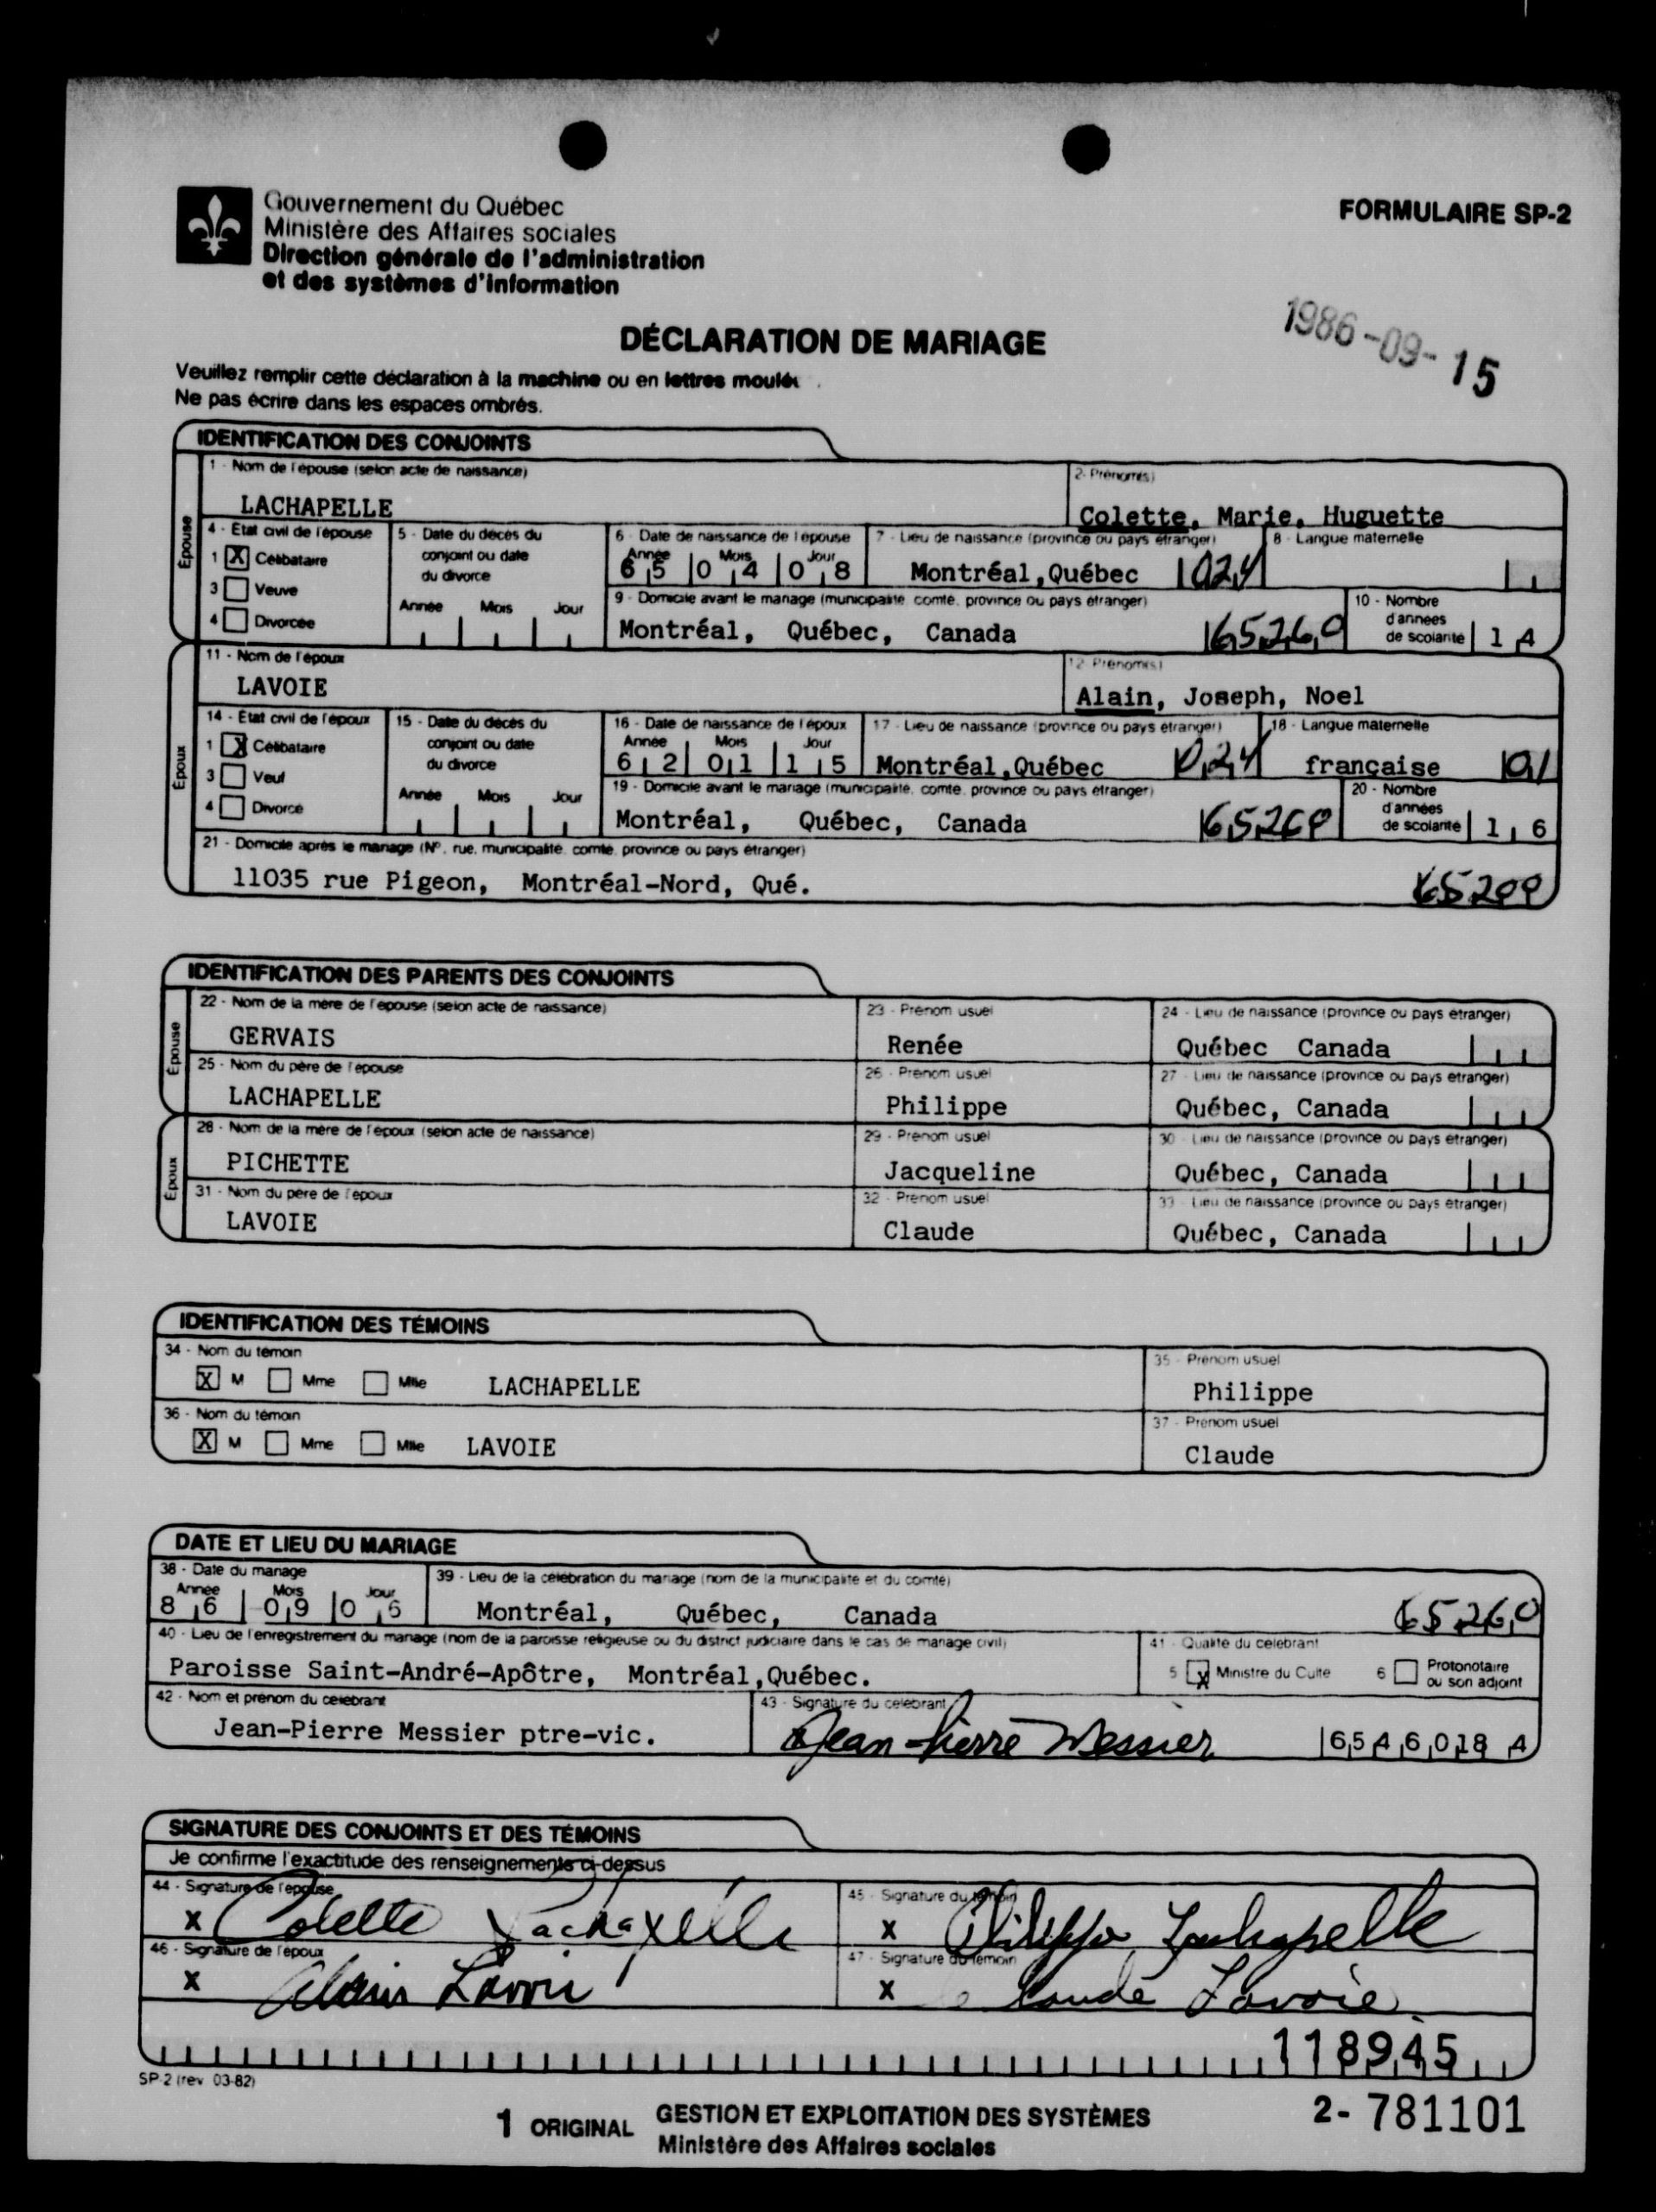 Gouvernement du Québec
Ministère des Affaires sociales
Direction générale de l'administration
et des systèmes d'information
FORMULAIRE SP-2
DÉCLARATION DE MARIAGE
1986-09-15
Veuillez remplir cette déclaration à la machine ou en lettres moulé
Ne pas écrire dans les espaces ombrés.
IDENTIFICATION DES CONJOINTS
Épouse
1 - Nom de l'épouse (selon acte de naissance)
2- Prénom(s)
LACHAPELLE
Colette, Marie, Huguette
4 - État civil de l'épouse
5 - Date du décès du conjoint ou date du divorce
6 - Date de naissance de l'épouse
7 - Lieu de naissance (province ou pays étranger)
8 - Langue maternelle
1 X Célibataire
3 Veuve
4 Divorcée
Année Mois Jour
Année Mois Jour
65 04 08
Montréal,Québec 024
9 - Domicile avant le mariage (municipalité, comté, province ou pays étranger)
Montréal, Québec, Canada 65260
10 - Nombre d'années de scolarité 14
Époux
11 - Nom de l'époux
12- Prénom(s)
LAVOIE
Alain, Joseph, Noel
14 - État civil de l'époux
15 - Date du décès du conjoint ou date du divorce
16 - Date de naissance de l'époux
17 - Lieu de naissance (province ou pays étranger)
18 - Langue maternelle
1 X Célibataire
3 Veuf
4 Divorcé
Année Mois Jour
Année Mois Jour
62 01 15
Montréal,Québec 024
française 01
19 - Domicile avant le mariage (municipalité, comté, province ou pays étranger)
Montréal, Québec, Canada 65260
20 - Nombre d'années de scolarité 16
21 - Domicile après le mariage (N°, rue, municipalité, comté, province ou pays étranger)
11035 rue Pigeon, Montréal-Nord, Qué.
IDENTIFICATION DES PARENTS DES CONJOINTS
Épouse
22 - Nom de la mère de l'épouse (selon acte de naissance)
23 - Prénom usuel
24 - Lieu de naissance (province ou pays étranger)
GERVAIS
Renée
Québec Canada
25 - Nom du père de l'épouse
26 - Prénom usuel
27 - Lieu de naissance (province ou pays étranger)
LACHAPELLE
Philippe
Québec, Canada
Époux
28 - Nom de la mère de l'époux (selon acte de naissance)
29 - Prénom usuel
30 - Lieu de naissance (province ou pays étranger)
PICHETTE
Jacqueline
Québec, Canada
31 - Nom du père de l'époux
32 - Prénom usuel
33 - Lieu de naissance (province ou pays étranger)
LAVOIE
Claude
Québec, Canada
IDENTIFICATION DES TÉMOINS
34 - Nom du témoin
35 - Prénom usuel
X M Mme Mlle LACHAPELLE
Philippe
36 - Nom du témoin
37 - Prénom usuel
X M Mme Mlle LAVOIE
Claude
DATE ET LIEU DU MARIAGE
38 - Date du mariage
39 - Lieu de la célébration du mariage (nom de la municipalité et du comté)
Année Mois Jour
86 09 06
Montréal, Québec, Canada 65260
40 - Lieu de l'enregistrement du mariage (nom de la paroisse religieuse ou du district judiciaire dans le cas de mariage civil)
41 - Qualité du célébrant
Paroisse Saint-André-Apôtre, Montréal,Québec.
5 X Ministre du Culte
6 Protonotaire ou son adjoint
42 - Nom et prénom du célébrant
43 - Signature du célébrant
Jean-Pierre Messier ptre-vic.
Jean-Pierre Messier
65460184
SIGNATURE DES CONJOINTS ET DES TÉMOINS
Je confirme l'exactitude des renseignements ci-dessus
44 - Signature de l'épouse
45 - Signature du témoin
X Colette Lachapelle
X Philippe Lachapelle
46 - Signature de l'époux
47 - Signature du témoin
X Alain Lavoie
X Claude Lavoie
118945
SP-2 (rev. 03-82)
1 ORIGINAL
GESTION ET EXPLOITATION DES SYSTÈMES
Ministère des Affaires sociales
2- 781101